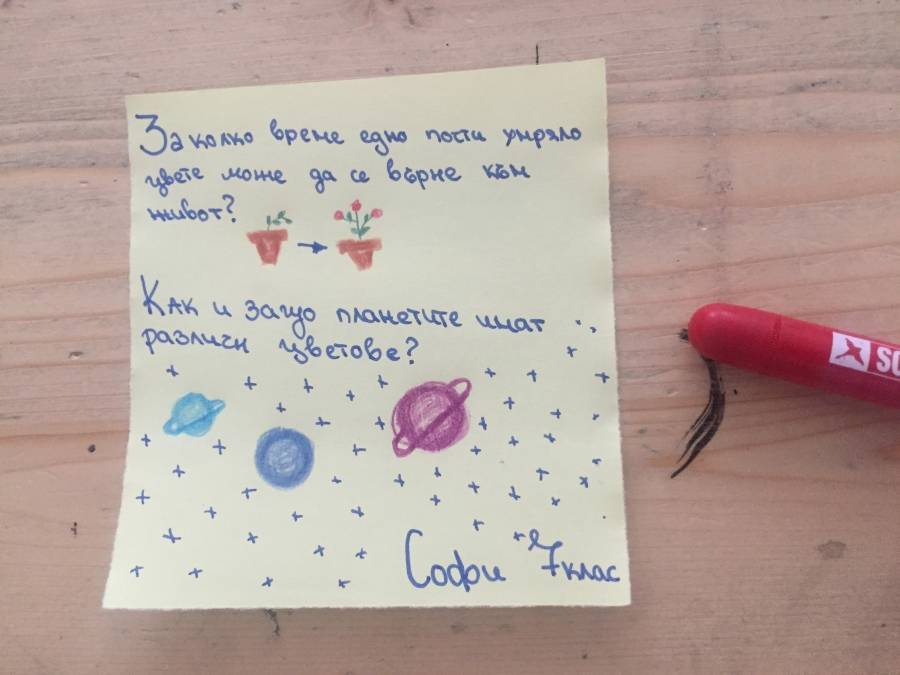 За колко време едно почти умряло
цвете може да се върне към
живот?
Как и защо планетите имат
различн цветове?
Софи 7 клас
SC